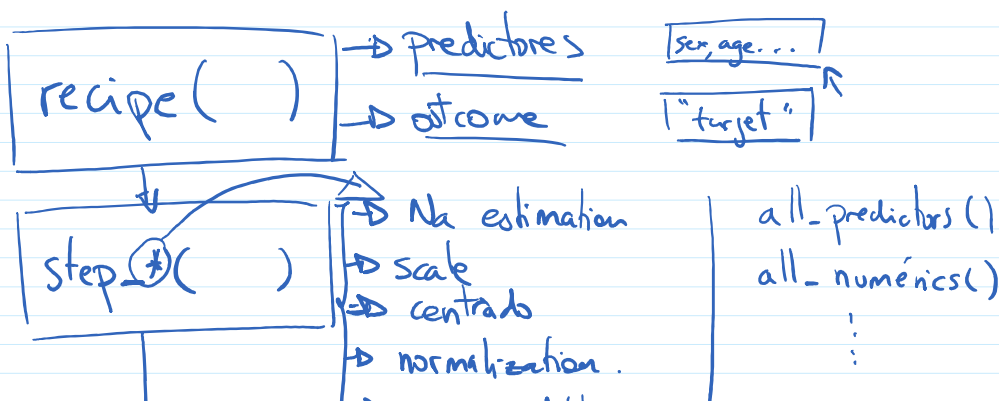 recipe( )
predictores
sex, age...
outcome
"target"
step_*( )
Na estimation
scale
centrado
normalization.
all_predictors()
all_numérics()